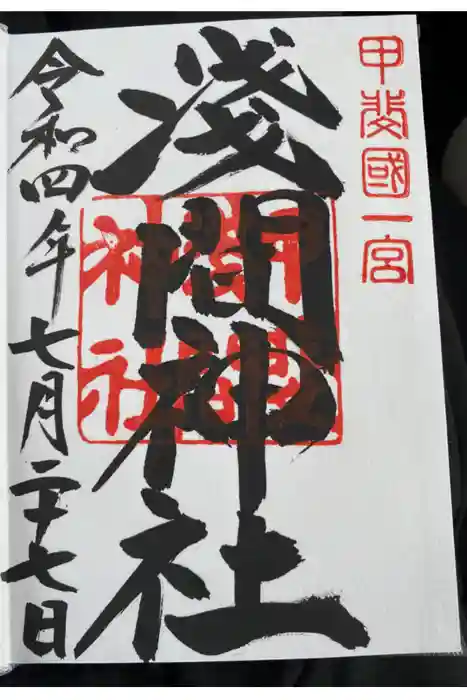 甲斐國一宮
淺間神社
淺間神社
令和四年七月二十七日